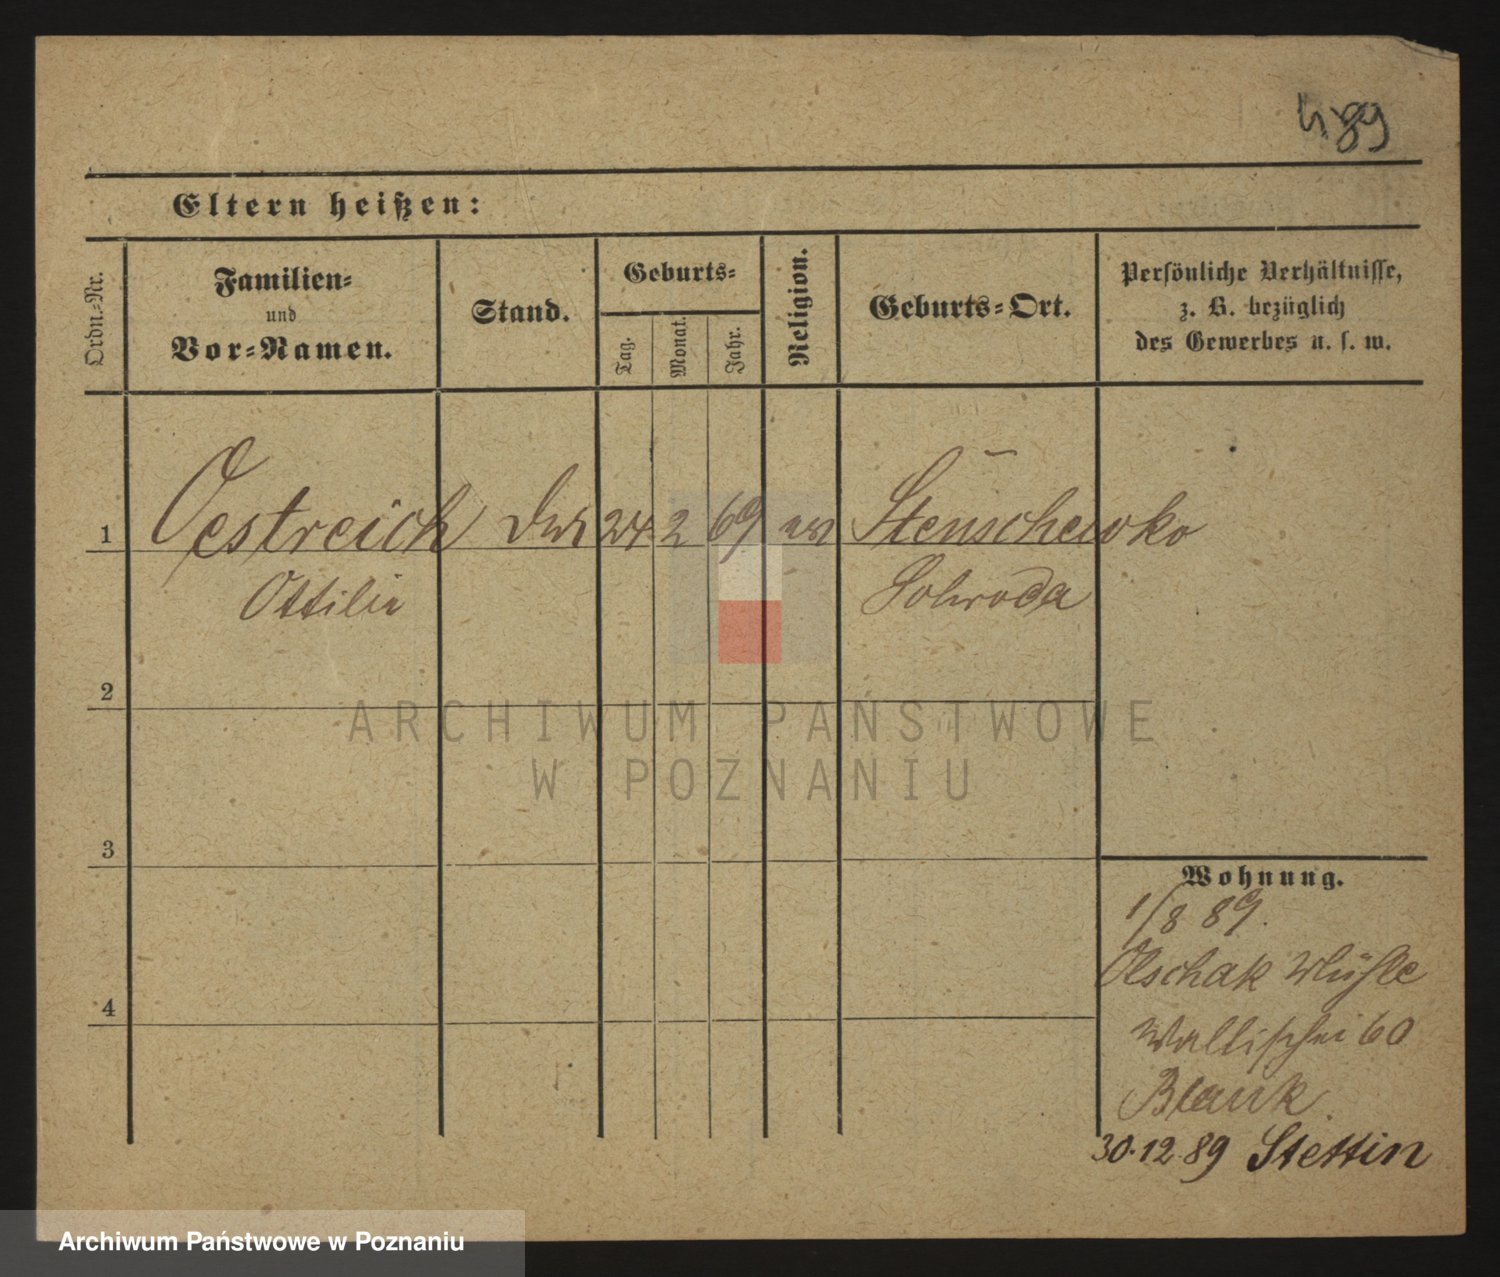 489
Eltern heißen:
Ordn.-Nr.
Familien-
und
Vor-Namen.
Stand.
Geburts-
Tag.
Monat.
Jahr.
Religion.
Geburts-Ort.
Persönliche Verhältnisse,
z. B. bezüglich
des Gewerbes u. s. w.
1 Oestreich 24. 2 69 ev Stenschewko
Ottilie Schroda
2
ARCHIWUM PAŃSTWOWE
W POZNANIU
3
Wohnung.
1/8 89.
Olschak Mühle
4
Wallischei 60
Blank.
30.12.89 Stettin
Archiwum Państwowe w Poznaniu